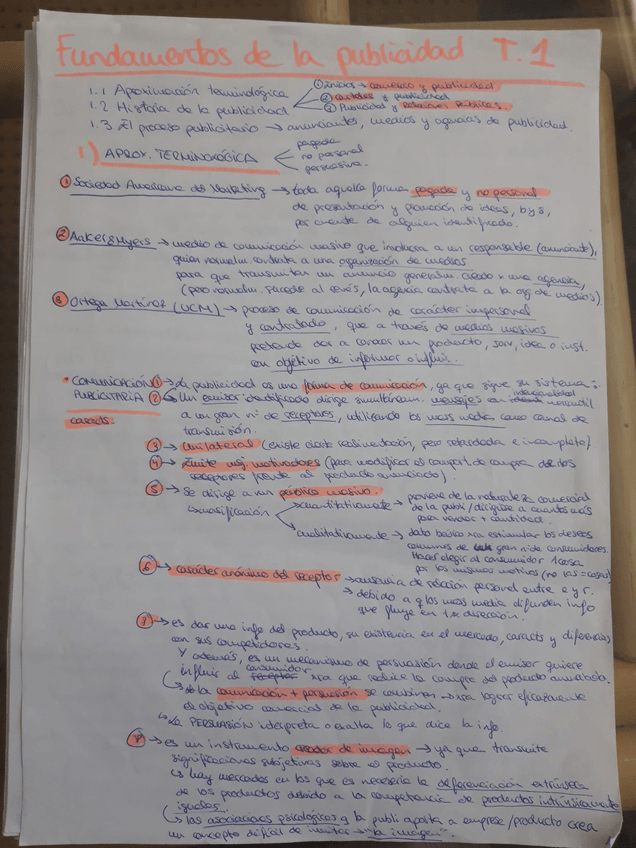 Fundamentos de la publicidad T.1
1.1 Aproximación terminológica
1.2 Historia de la publicidad
① Inicios → comercio y publicidad
② carteles y publicidad
③ Publicidad y Relaciones Públicas.
1.3 El proceso publicitario → anunciantes, medios y agencias de publicidad.
1) APROX. TERMINOLÓGICA
pagada
no personal
persuasiva
① Sociedad Americana del Marketing → toda aquella forma pagada y no personal
de presentación y promoción de ideas, b y s,
por cuenta de alguien identificado.
② Aaker & Myers → medio de comunicación masivo que involucra a un responsable (anunciante),
quien normalm. contrata a una organización de medios
para que transmitan un anuncio generalm. creado x una agencia,
(pero normalm. sucede al revés, la agencia contrata a la org de medios)
③ Ortega Martínez (UCM) → proceso de comunicación de carácter impersonal
y controlado, que a través de medios masivos
pretende dar a conocer un producto, serv, idea o inst.
con objetivo de informar o influir.
• COMUNICACIÓN PUBLICITARIA
caracts.
① → La publicidad es una forma de comunicación, ya que sigue su sistema:
② Un emisor identificado dirige simultáneam. mensajes con intencionalidad mercantil
a un gran nº de receptores, utilizando los mass media como canal de
transmisión.
③ → Unilateral (existe cierta realimentación, pero retardada e incompleta)
④ → Emite msj. motivadores (para modificar el comport. de compra de los
receptores frente al producto anunciado).
⑤ → Se dirige a un público masivo.
masificación
cuantitativamente → proviene de la naturaleza comercial
de la publi / dirigirse a cuantos más
para vender + cantidad.
cualitativamente → dato básico xra estimular los deseos
comunes de gran nº de consumidores.
Hacer elegir al consumidor 1 cosa
por los mismos motivos
⑥ → carácter anónimo del receptor → ausencia de relación personal entre e y r.
→ debido a q los mass media difunden info
que fluye en 1 dirección.
⑦ → es dar una info del producto, su existencia en el mercado, caracts y diferencias
con sus competidores.
Y además, es un mecanismo de persuasión donde el emisor quiere
influir al receptor consumidor xra que realice la compra del producto anunciado.
la comunicación + persuasión se combinan → xra lograr eficazmente
el objetivo comercial de la publicidad.
↳ La PERSUASIÓN interpreta o exalta lo que dice la info.
⑧ → es un instrumento creador de imagen → ya que transmite
significaciones subjetivas sobre el producto.
↳ hay mercados en los que es necesaria la diferenciación extrínseca
de los productos debido a la competencia de productos intrínsicamente
iguales.
↳ las asociaciones psicológicas q la publi aporta a empresa/producto crea
un concepto difícil de imitar → "la imagen".